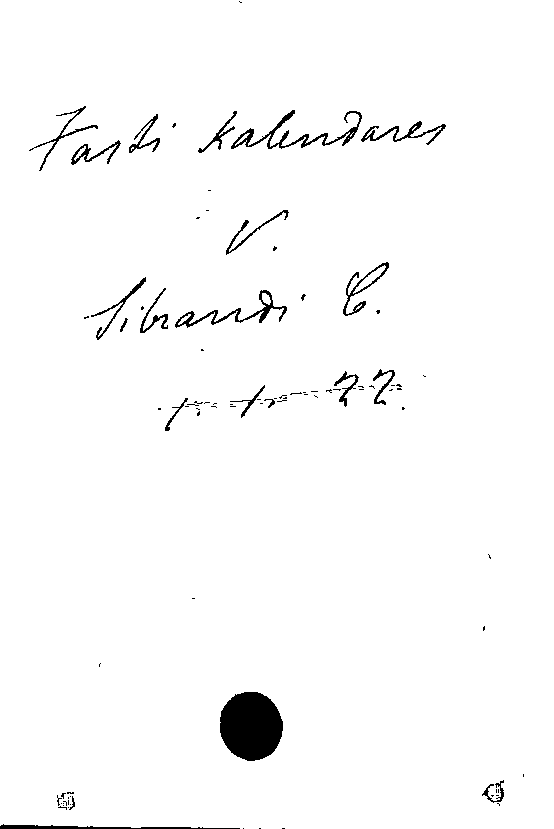 Fasti Kalendares
V.
Sibrandi C.
22.